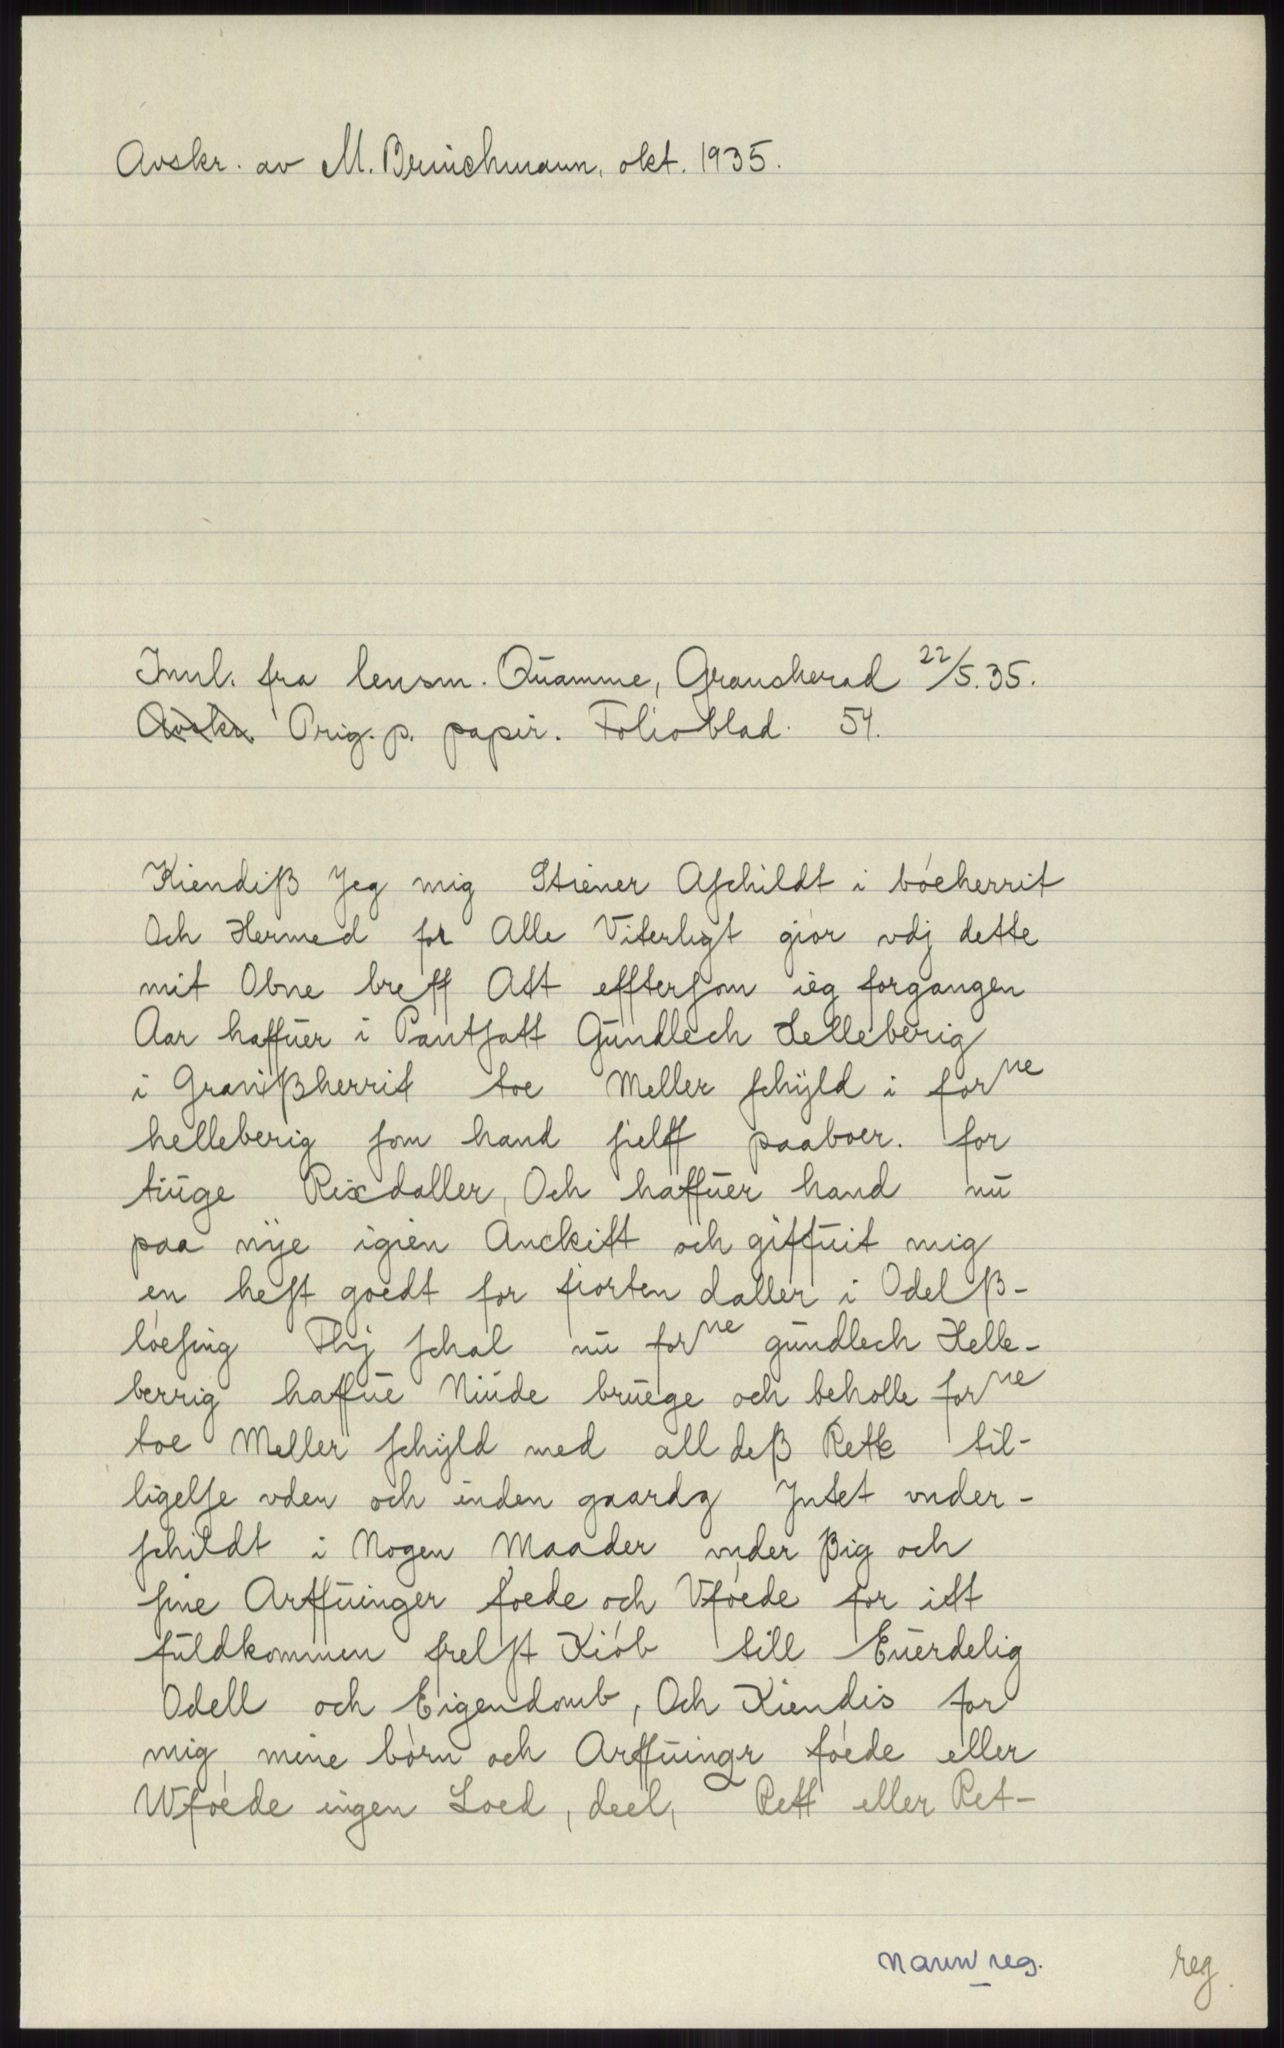 Avskr. av M. Brinchmann, okt. 1935.
Innl. fra lensm. Quamme, Gransherad 22/5.35.
Avskr. Orig. p. papir. Folioblad. 54.
Kiendiß Jeg mig Stiener Aschildt i bóeherrit
Och Hermed for Alle Viterligt giór vdj dette
mit Obne breff Att efftersom ieg forgangen
Aar haffuer i Pantsatt Gundlech Helleberig
i Granißherrit toe Meller schÿld i forne
helleberig som hand sielff paaboer. for
tiuge Rixdaller, Och haffuer hand nu
paa nÿe igien Anckitt och giffuit mig
en hest goedt for fiorten daller i Odelß-
lóesing Thj schal nu forne gundlech Helle-
berrig haffue Niude bruege och beholle forne
toe Meller schÿld med all deß Rette til-
ligelse vden och inden gaardz Jntet vnder-
schildt i Nogen Maader vnder ßig och
sine Arffuinger fóede och Vfóede for itt
fuldkommen frelst Kiób till Euerdelig
Odell och Eigendomb, Och Kiendis for
mig mine bórn och Arffuingr fóede eller
Wfóede ingen Loed, deel, Rett eller Ret-
navnreg.
reg.